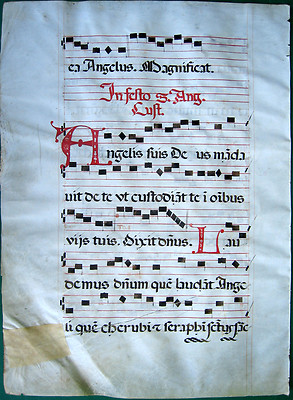 ea Angelus. Magnificat.
In festo S. Ang.
Cust.
Angelis suis De us mãda
uit de te vt custodiãt te i oĩbus
vijs tuis. Dixit dñus. Lau
demus dñum quẽ laudãt Ange
li quẽ cherubi